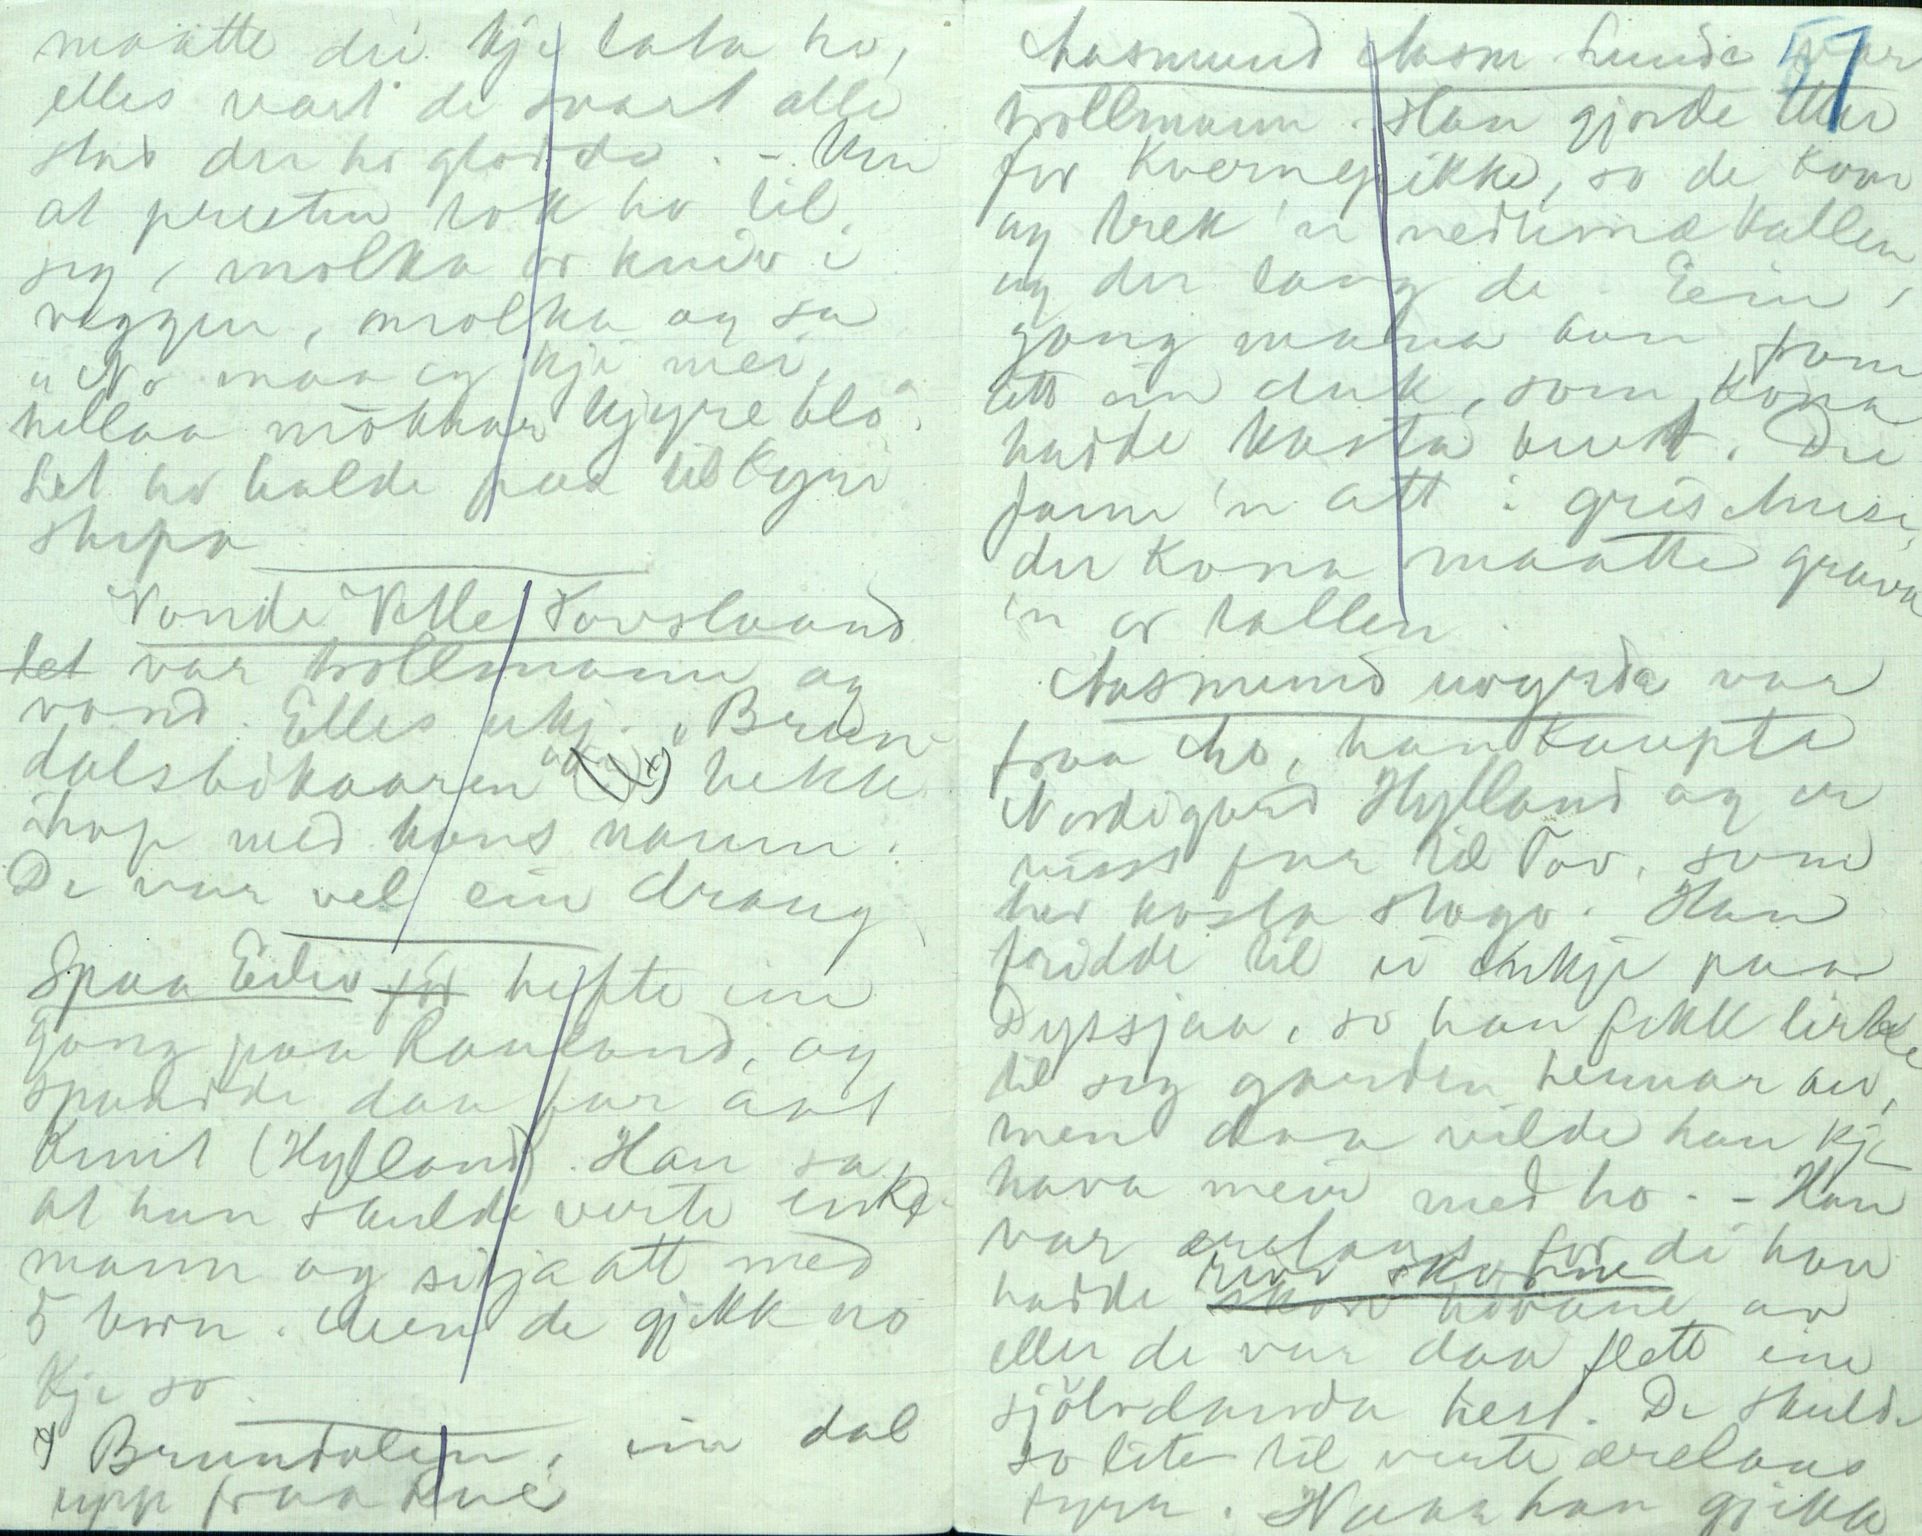 maatte dei kje lata ho,
elles vart de svart alle
stad der ho glodde. - Um
at presten tok ho til
seg, molka or kniv i
veggen, molka og sa
"No maa eg kje mei,
hellaa mokkar kjyre blo".
Let ho halde paa til kyri
stupa
Vonde Vetle Hovslaand
let var trollmann og
vond. Elles ukj. "Brun-
dalsbikaaren" x) hekk
ihop med hans namn.
De var vel ein draug
Spaa Eilev for hefte ein
gong paa Rauland, og
spaadde daa far aat
Knut (Hylland). Han sa
at han skulde verte enkje-
mann og sitja att med
5 born. Men de gjekk no
kje so.
x) Brundalen, ein dal
upp fraa Rue
57
Aasmund Aasm. Lunde var
trollmann. Han gjorde etter
for Kvernepikke, so de kom
og trek 'n nedunde kallen
og der laag de. Ein
gong mana han fram
att ein duk, som kona
hadde kasta burt. Dei
fann 'n att i grishuse,
der kona maatte grava
'n or tallen.
Aasmund uvyrda var
fraa Mo, han kaupte
Nordigard Hylland og er
visst far til Tov, som
her kosta Skogo. Han
fridde til ei enkje paa
Dyssjaa, so han fekk lirka
til seg garden hennar av,
men daa vilde han kje
hava meir med ho. - Han
var ærelaus for di han
hadde skore hovane av
eller de var daa flett ein
sjølvdauda hest. De skulde
so lite til verte ærelaus
fyrr. Naar han gjekk